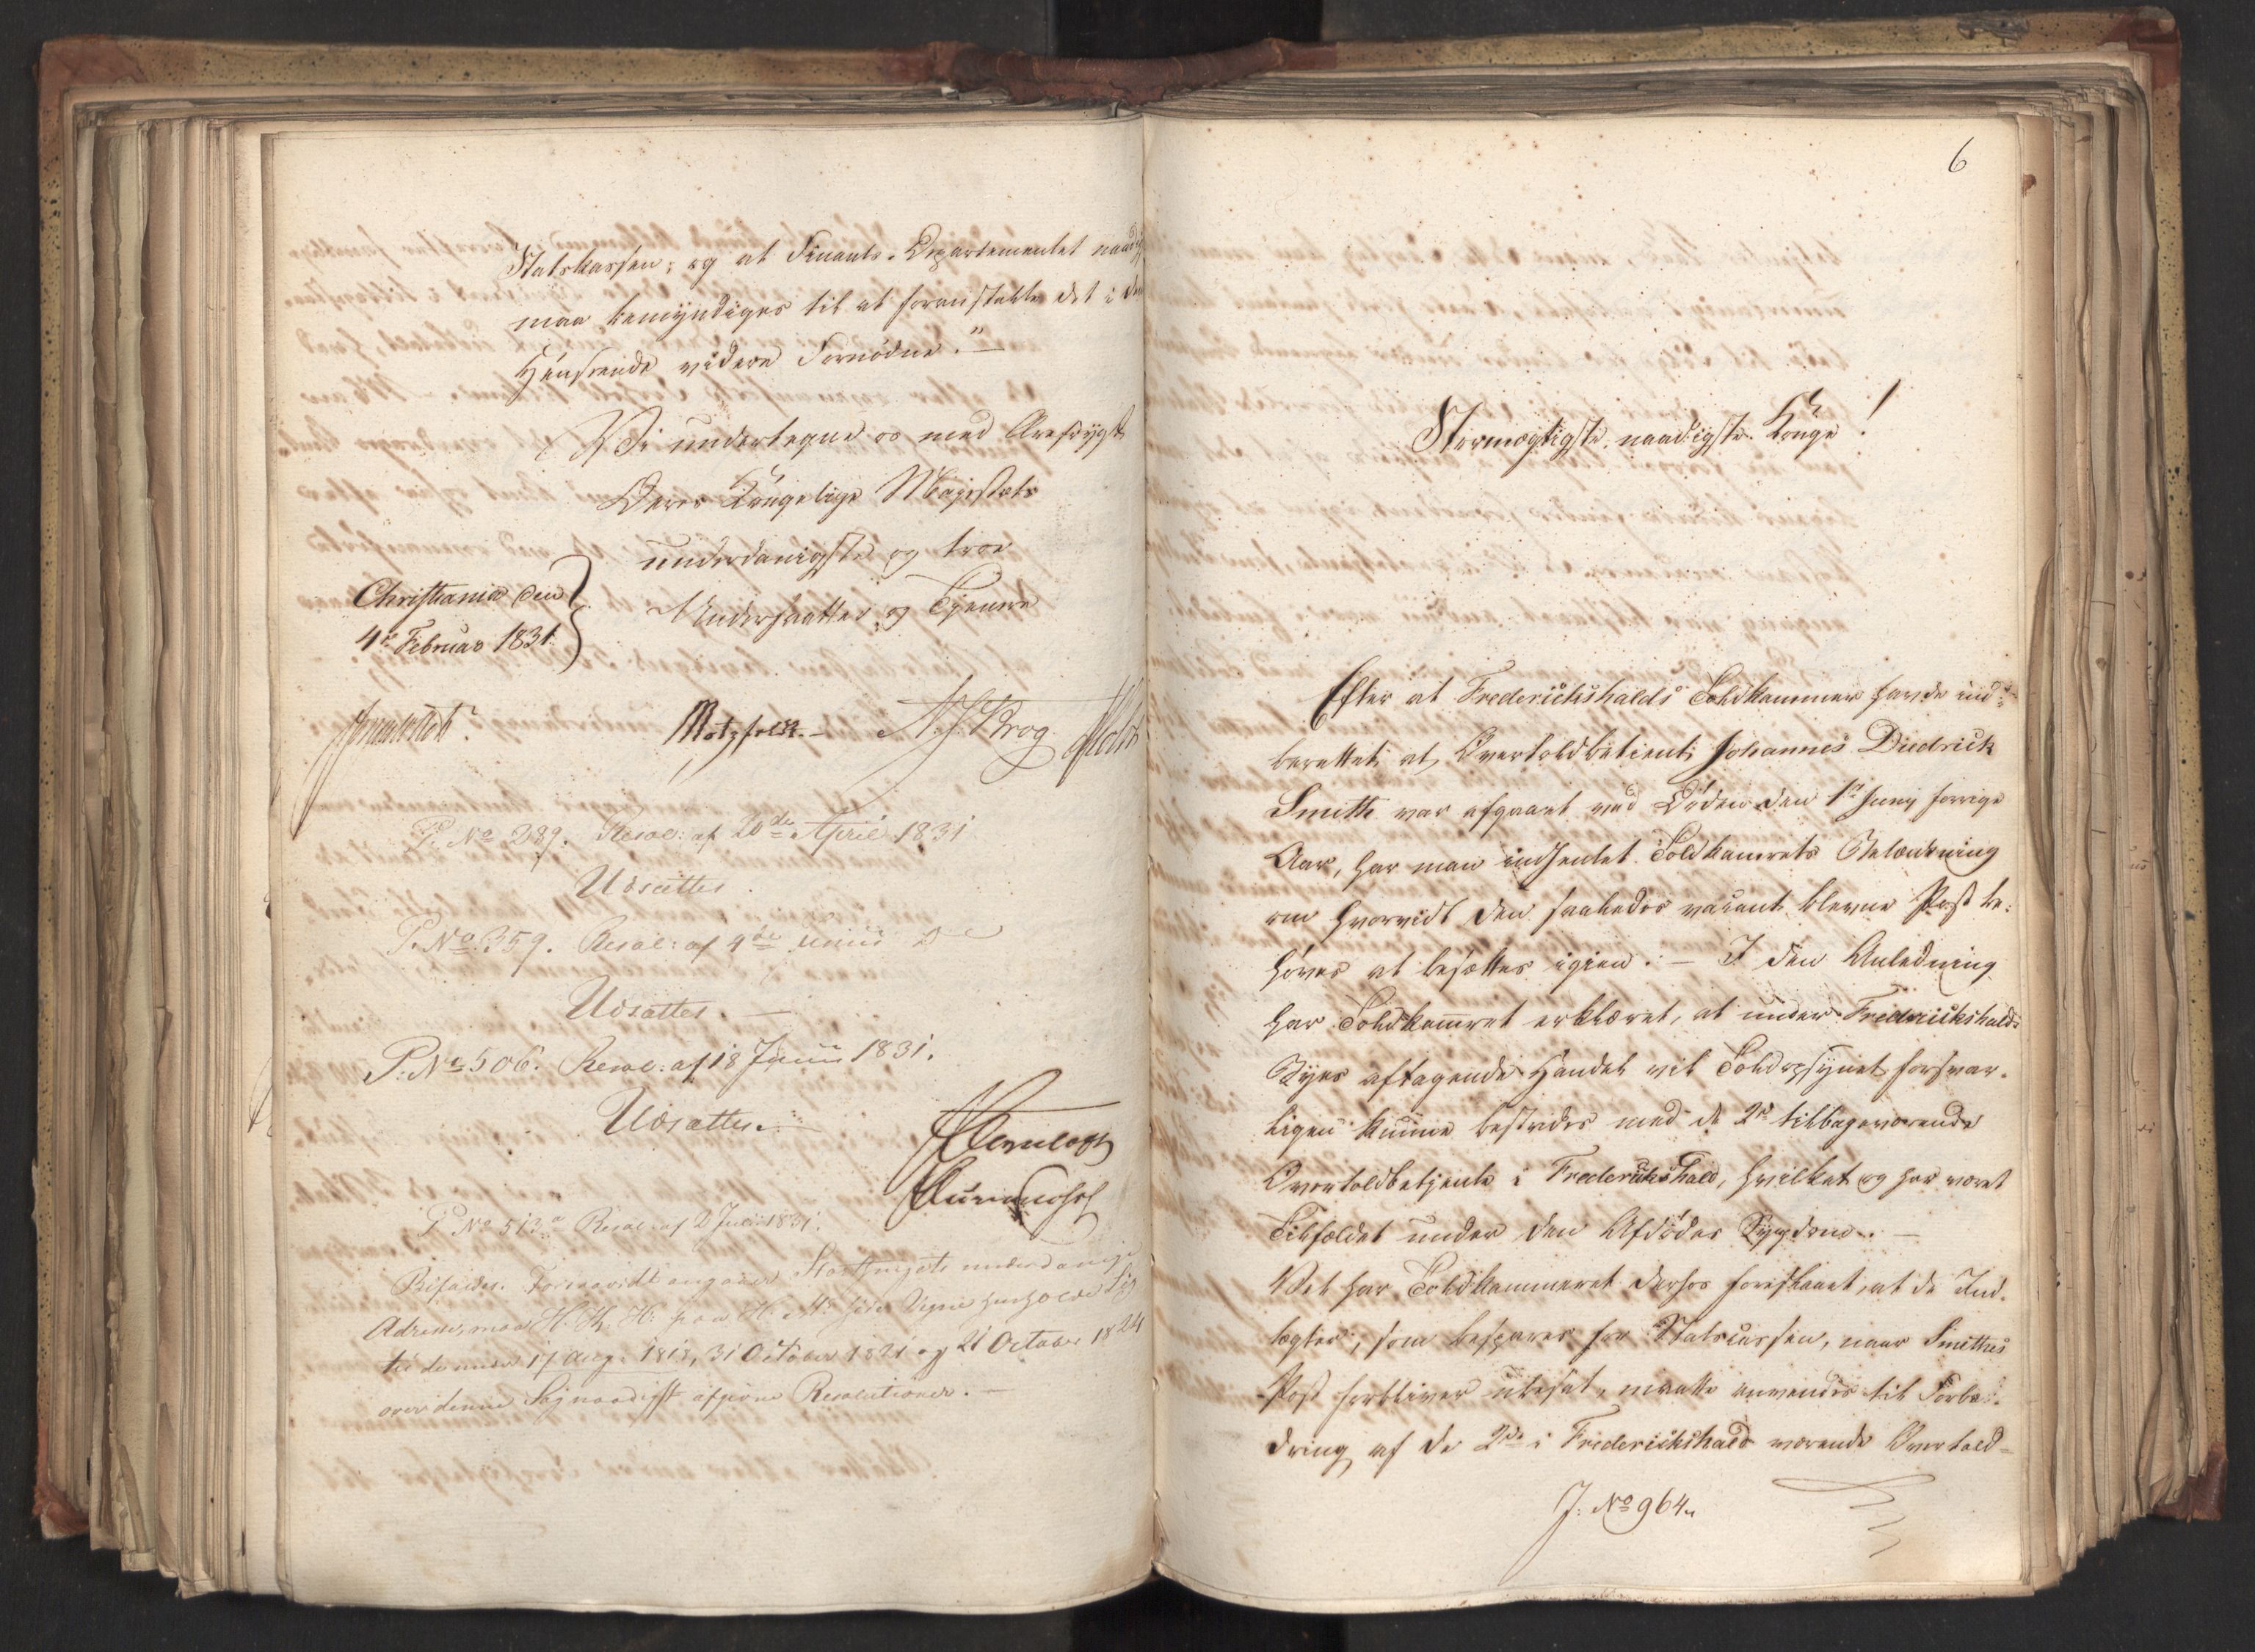 Statskassen; og at Finants-Departementet naadigst
maa bemyndiges til at foranstalte det i den
Henseende videre Fornødne."—
Vi undertegne os med Ærefrygt
Deres Kongelige Majestæts
underdanigste og troe
Undersaatter og Tjenere
Christiania den
4de Februar 1831.
Motzfeldt.— N. J. Krog Holst
P. No 289. Resol: af 20de April 1831
Udsættes.
P. No 359. Resol: af 4de Junii
Udsættes.—
P. No 506. Resol: af 18 Junii 1831.
Udsættes.—
P No 513a Resol: af 2 Juli 1831.
Bifaldes. Forsaavidt angaaer Storthingets underdanige
Adresse, maa H. K. H. paa H. M. Side
til de under 17 Aug: 1818, 31 October 1821 og 21 October 1824
over denne Sag naadigst afgivne Resolutioner.—
6
Stormægtigste, naadigste Konge!
Efter at Frederichshalds Toldkammer havde ind-
berettet, at Overtoldbetient Johannes Diedrich
Smith var afgaaet ved Døden den 1te Juny forrige
Aar, har man indhentet Toldkamrets Betænkning
om hvorvidt den saaledes vacant blevne Post be-
høves at besættes igien.— I den Anledning
har Toldkamret erklæret, at under Fredrichshalds
Byes aftagende Handel vil Toldopsynet forsvar-
ligen kunne bestrides med de 2de tilbageværende
Overtoldbetjente i Frederichshald, hvilket og har været
Tilfældet under den Afdødes Sygdom.—
Vel har Toldkammeret derhos foreslaaet, at de Ind-
tægter, som bespares for Statscassen, naar Smiths
Post forbliver ubesat, maatte anvendes til Forbe-
dring af de 2de i Friderichshald værende Overtold-
J. No 964.